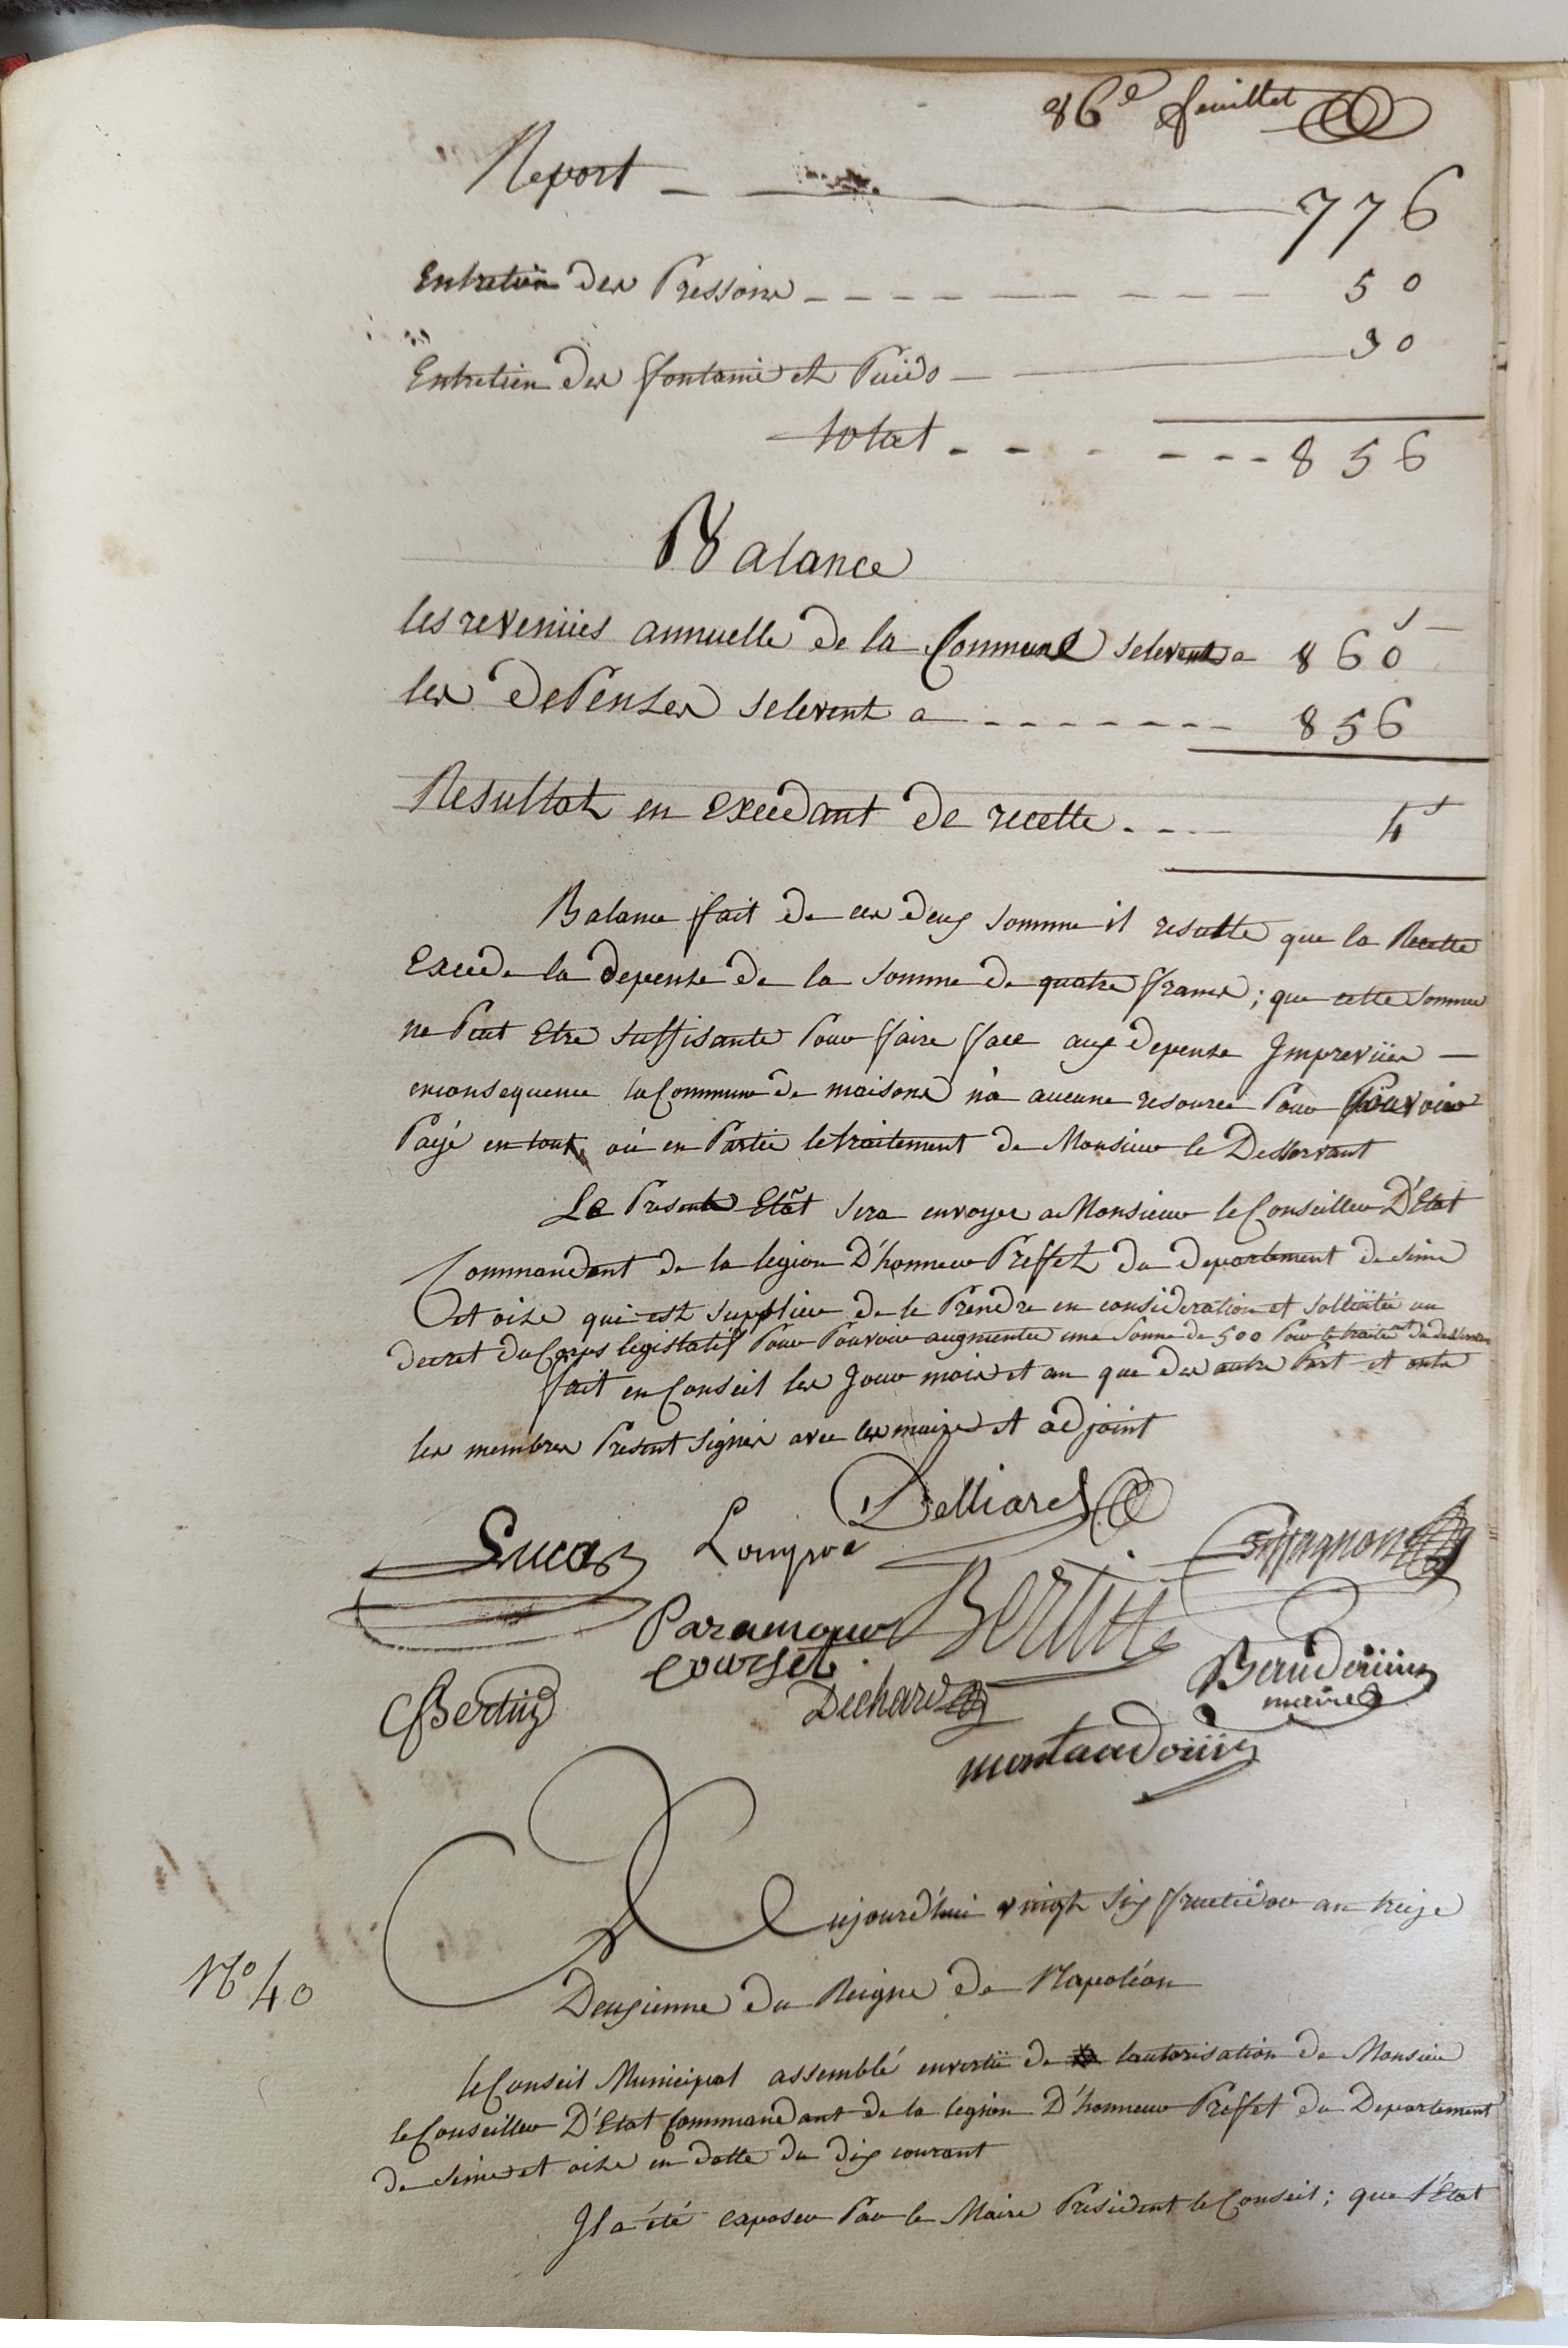 86e feuillet
Report - 776
Entretien des Pressoirs - - - - 50
Entretien des fontaine et Puids - 30
total - - - - - - 856
Balance
les revenües annuelle de la Commune selevent a 860
les dePenses selevent a - - - - - - - 856
Resultat en excedant de recette - - - - 4 f
Balance fait de ces deux somme il resulte que la Recette
Excede la depense de la somme de quatre francs ; que cette somme
ne Peut Etre suffisante Pour faire face aux depense Imprevües —
en consequence la Commune de maisons n'a aucune resource Pour Pouvoir
Payé en tout, ou en Partie le traitement de Monsieur le Desservant
Le Present Etat sera envoyer a Monsieur le Conseiller D'Etat
Commandant de la legion D'honneur Preffet du departement de seine
et oise qui est supplier de le Prendre en consideration et sollicitée un
decret du Corps legislatif Pour Pouvoir augmenter une somme de 500 Pour le traitemt du desservant
fait en Conseil les Jour mois et an que des autre Part et ont
les membres Present signer avec les maire et adjoint
Delliard
Lucas
Compagnon
Bertin
Paramour
Courset
Baudoüin
maire
CBertin
Dechard
montaudoüin
Aujourd'hui vingt six fructidor an treize
Deuxienne du Reigne de Napoléon
No 40
le Conseil Municipal assemblé envertü de lautorisation de Monsieur
le Conseiller D'Etat Commandant de la legion D'honneur Preffet du Departement
de seine et oise en datte du dix courant
Il a été exposer Par le Maire President le Conseil ; que l'Etat